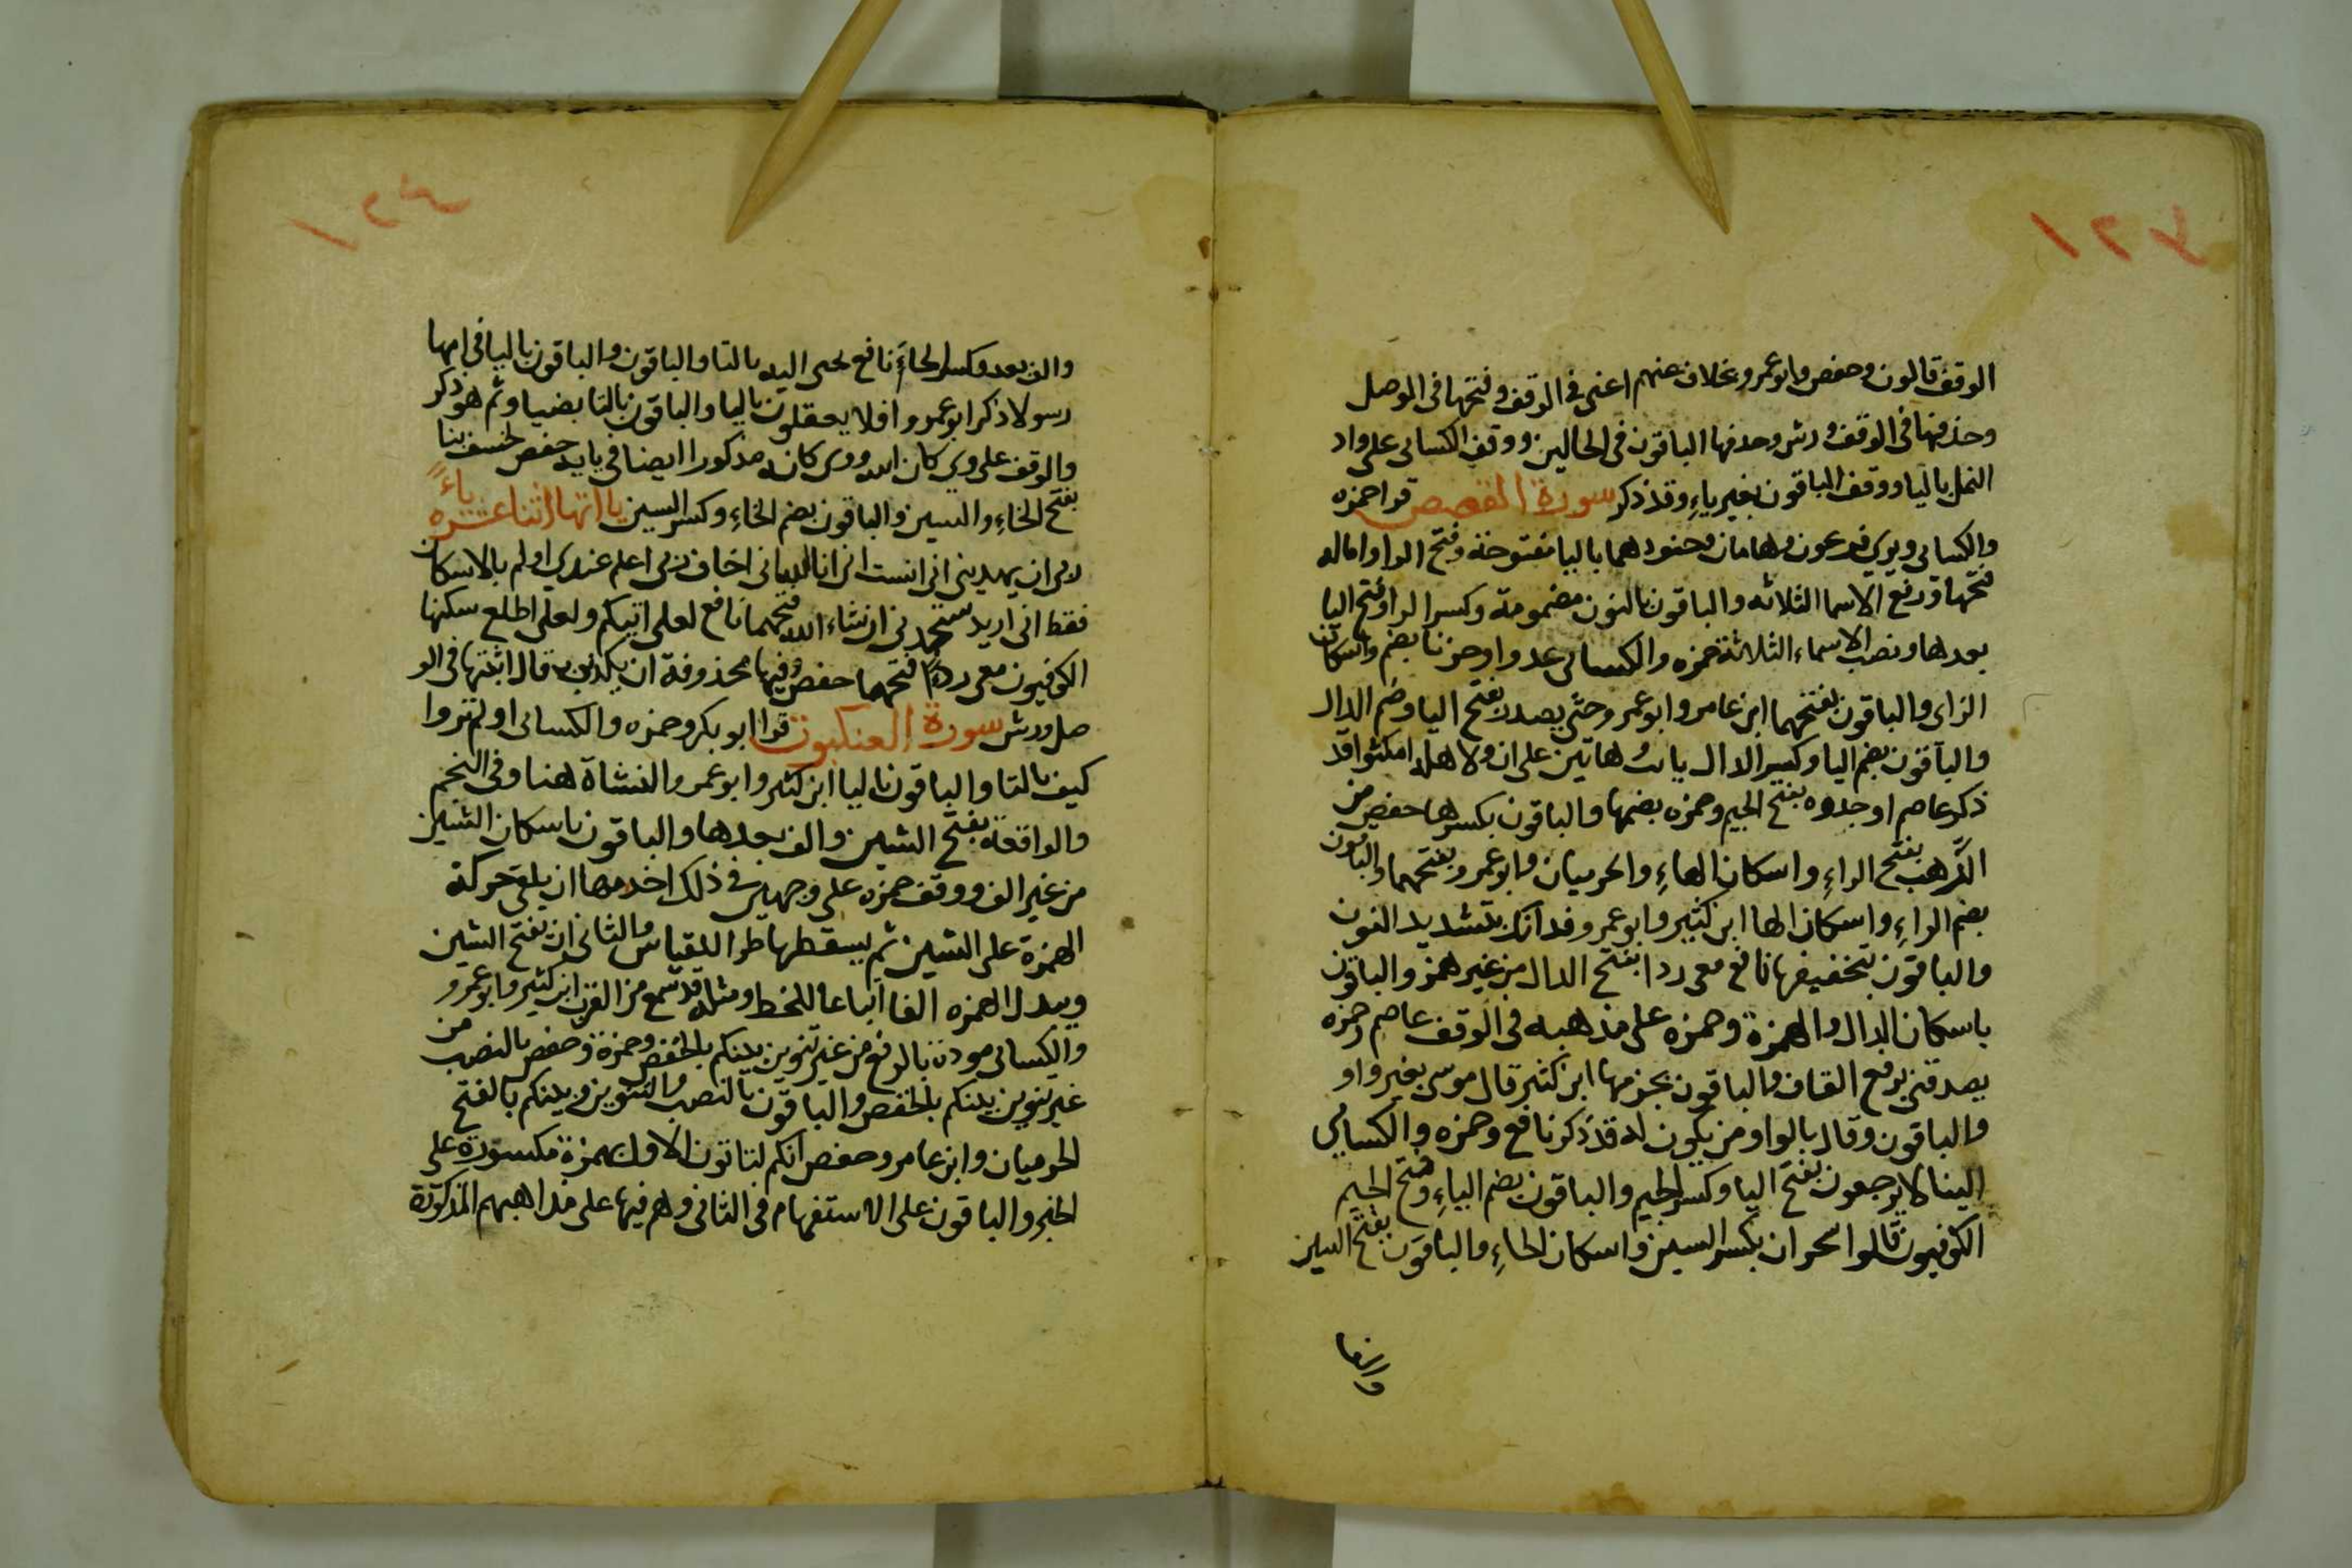 ١٢٢
الوقف قالون وحفص وابو عمرو بخلاف عنهم اعنى فى الوقف وفتحها فى الوصل
وحذفها فى الوقف ورش وحذفها الباقون فى الحالين ووقف الكسائى على واد
النمل باليا ووقف الباقون بغير ياءِ وقد ذكر سورة القصص قرا حمزه
والكسائى ويرى فرعون وهامان وجنودهما باليا مفتوحة وفتح الرا واماله
فتحها ورفع الاسما الثلاثه والباقون بالنون مضمومة وكسر الرا وفتح اليا
بعدها ونصب الاسماء الثلاثة حمزه والكسائى عدوا وحزنا بضم واسكان
الزاى والباقون بفتحهما ابن عامر وابو عمرو حتى يصدر بفتح اليا وضم الدال
والباقون بضم اليا وكسر الدال يا ابت هاتين على ان ولاهله امكثوا قد
ذكر عاصم او جذوه بفتح الجيم وحمزه بضمها والباقون بكسرها حفص من
الرَّهب بفتح الراءِ واسكان الهاءِ والحرميان وابو عمرو بفتحهما والباقون
بضم الراءِ واسكان الها ابن كثير وابو عمرو فذانك بتشديد النون
والباقون بتخفيفها نافع معى ردا بفتح الدال من غير همز والباقون
باسكان الدال والهمزة وحمزه على مذهبه فى الوقف عاصم وحمزه
يصدقنى برفع القاف والباقون بجزمها ابن كثير قال موسى بغير واو
والباقون وقال بالواو من يكون له قد ذكر نافع وحمزه والكسائي
الينا لا يرجعون بفتح اليا وكسر الجيم والباقون بضم الياءِ وفتح الجيم
الكوفيون قالوا سحران بكسر السين واسكان الحاءِ والباقون بفتح السين
والف بعد
١٢٣
والف بعد وكسر الحاءَ نافع تجبى اليه بالتا والباقون والباقون باليا فى امها
رسولا ذكر ابو عمرو افلا يعقلون باليا والباقون بالتا بضيا وثم هو ذكر
والوقف على وي كان الله ووى كانه مذكورا ايضا فى بابه حفص لخسف بنا
بفتح الخاءِ والسين والباقون بضم الخاءِ وكسر السين يااتها اثنا عشره ياءً
ربى ان يهدينى انى انست انى انا الله انى اخاف ربى اعلم عندي اولم بالاسكان
فقط انى اريد ستجدنى ان شاء الله فتحهما نافع لعلى اتيكم ولعلى اطلع سكنها
الكوفيون معى ردءًا فتحهما حفص وفيها محذوفة ان يكذبون قال اثبتها فى الو
صل ورش سورة العنكبوت قرا ابو بكر وحمزه والكسائى اولم تروا
كيف بالتا والباقون باليا ابن كثير وابو عمرو النشاة هنا وفى النجم
والواقعة بفتح الشين والف بعدها والباقون باسكان الشين
من غير الف ووقف حمزه على وجهين فى ذلك احدهما ان يلقى حركة
الهمزة على الشين ثم يسقطها طرا للقياس والثانى ان يفتح الشين
ويبدل الهمزه الفا اتباعا للخط ومثله قد سمع من العرب ابن كثير وابو عمرو
والكسائى مودة بالرفع من غير تنوين بينكم بالخفض وحمزة وحفص بالنصب من
غير تنوين بينكم بالخفض والباقون بالنصب والتنوين وبينكم بالفتح
الحرميان وابن عامر وحفص انكم لتاتون الاول بهمزة مكسورة على
الخبر والباقون على الاستفهام فى الثانى وهم فيها على مذاهبهم المذكورة